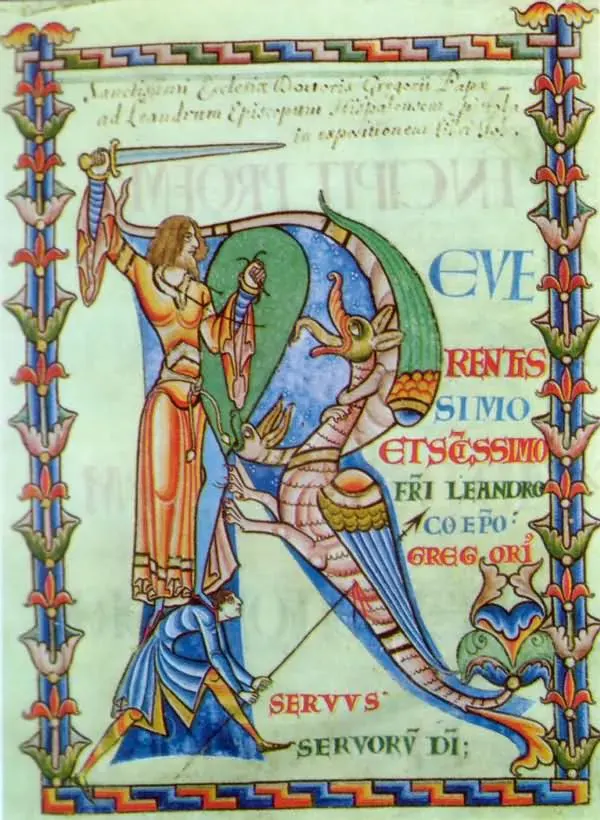 Sanctissimi Ecclesiæ Doctoris Gregorii Papæ
ad Leandrum Episcopum Hispalensem Epistola
in expositionem libri Job.
REVE
RENTIS
SIMO
ETSC̄ISSIMO
FR̄I LEANDRO
COEP̄O:
GREGORI'
SERVVS
SERVORV̄ D̄I;